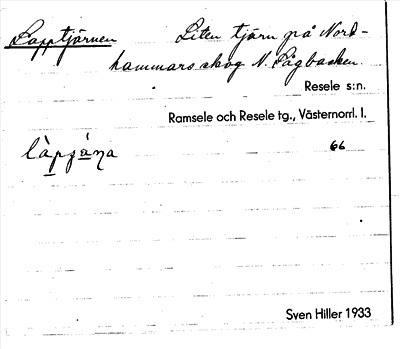 Lapptjärnen Liten tjärn på Nord-
hammars skog N. Lågbacken.
Resele s:n.
Ramsele och Resele tg., Västernorrl. l.
66
Sven Hiller 1933